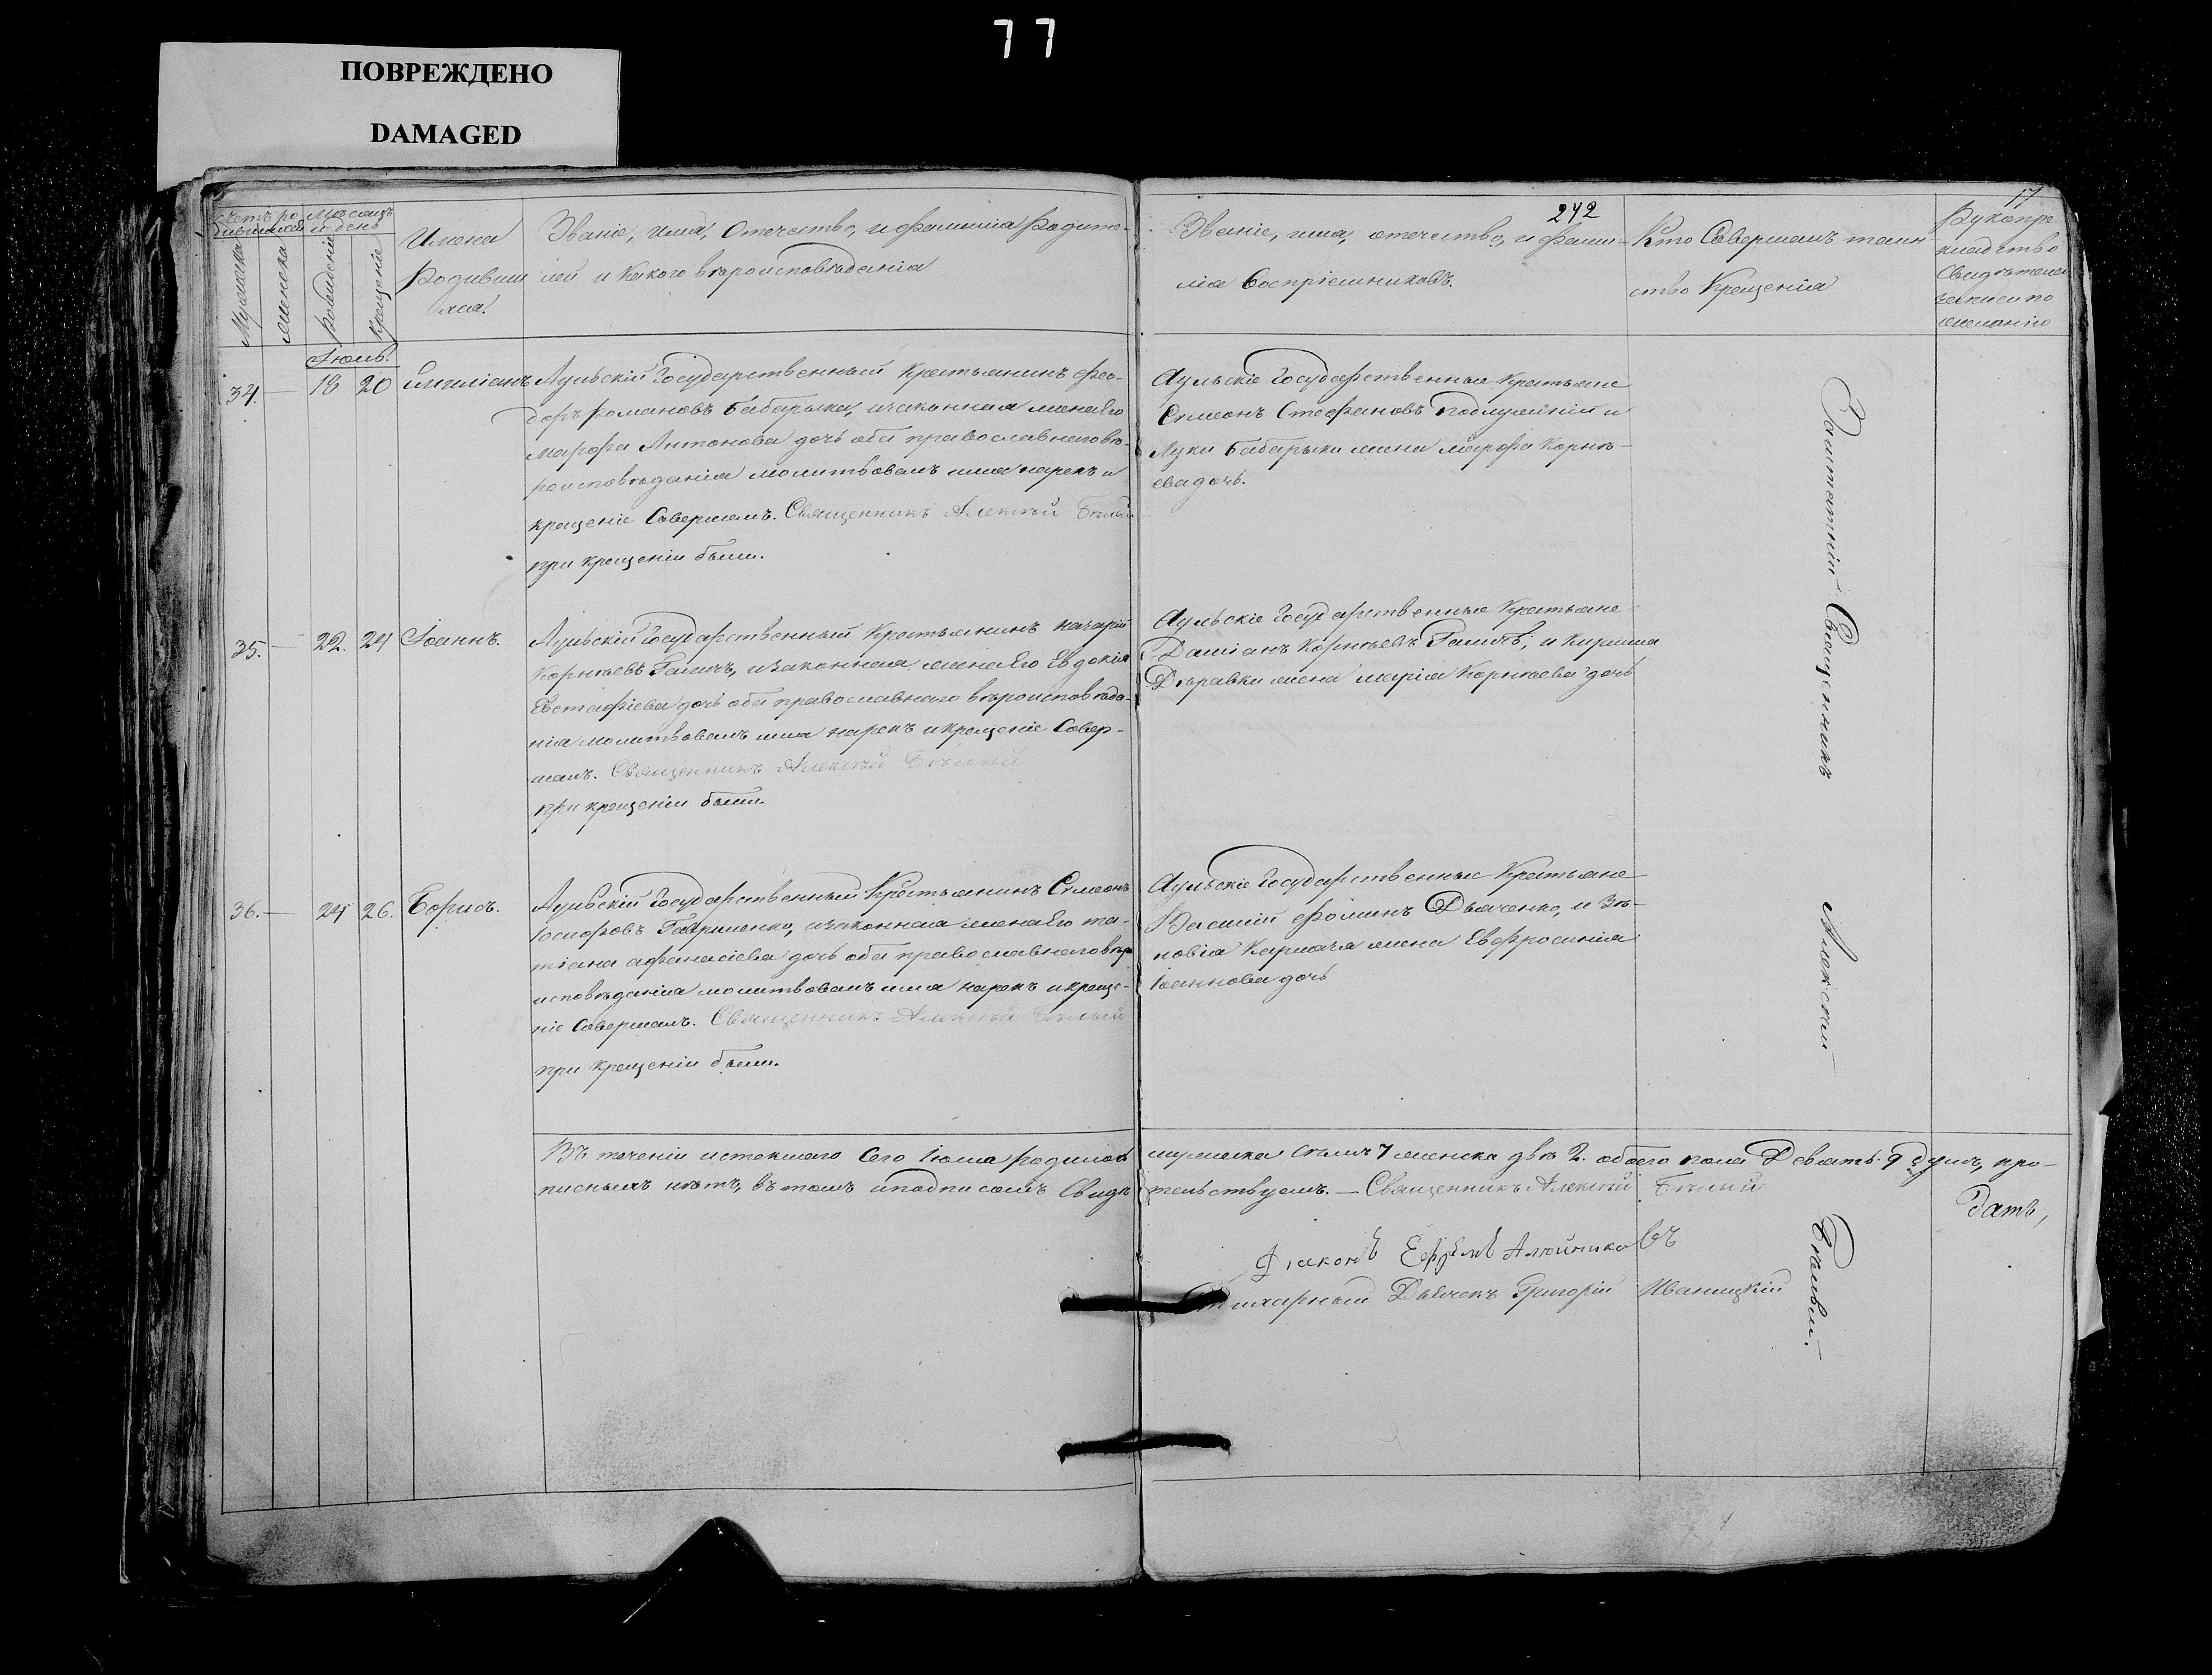 77
ПОВРЕЖДЕНО
DAMAGED
242
17
Счетъ ро
дившихся
Мужеска
женска
Мѣсяцъ
и день
Рожденія
Крещенія
Имена
Родивши
хся.
Званіе, имя, Отечество, и фамилія Родите-
лей и какого вѣроисповѣданія
Званіе, имя, отечество, и фами-
лія воспріемниковъ.
Кто Совершалъ таин
ство Крещенія
Рукопри
кладство
Свидѣтелей
записи по
желанію
Іюль.
34. — 18 20 Емиліанъ
Аульскій Государственный Крестьянинъ Фео-
доръ Романовъ Бабарыка, изаконная женаЕго
Марфа Антонова дочь оба православнаго вѣ-
роисповѣданія молитвовалъ имя нарекъ и
крещеніе Совершалъ. Священникъ Алексѣй Бѣлый
при крещеніи были.
Аульскіе Государственные Крестьяне
Симеонъ Стефановъ Подлужній и
Луки Бабарыки жена Марфа Корнѣ-
ева дочь.
35. — 22. 24 Іоаннъ.
Аульскій Государственный Крестьянинъ Назарій
Корнѣевъ Галичъ, изаконная женаЕго Евдокія
Евстафіева дочь оба православнаго вѣроисповѣда-
нія молитвовалъ имя нарекъ икрещеніе Совер-
шалъ. Священникъ Алексѣй Бѣлый
при крещеніи были.
Аульскіе Государственные Крестьяне
Даміанъ Корнѣевъ Галичъ, и Кирилла
Дѣравки жена Марія Корнѣева дочь
36. — 24 26. Борисъ.
Аульскій Государственный Крестьянинъ Симеонъ
Іосифовъ Гавриленко, изаконная женаЕго Та-
тіана Афанасіева дочь оба православнаго вѣро
исповѣданія молитвовалъ имя нарекъ икреще-
ніе Совершалъ. Священникъ Алексѣй Бѣлый
при крещеніи были.
Аульскіе Государственные Крестьяне
Василій Фоминъ Дьяченко, и Зѣ-
новія Кармача жена Евфросинія
Іоаннова дочь
Заштатній Священникъ
Алексѣй
Бѣлый.
Въ теченіи истекшаго Сего Іюля родилось мужеска Семь 7 женска двѣ 2. обоего пола Девять 9 душъ, про-
писныхъ нѣтъ, въ томъ иподписомъ Свидѣтельствуемъ. — Священникъ Алексѣй Бѣлый
Діаконъ Ефремъ Алейниковъ
Стихарный Дьячекъ Григорій Иваницкій